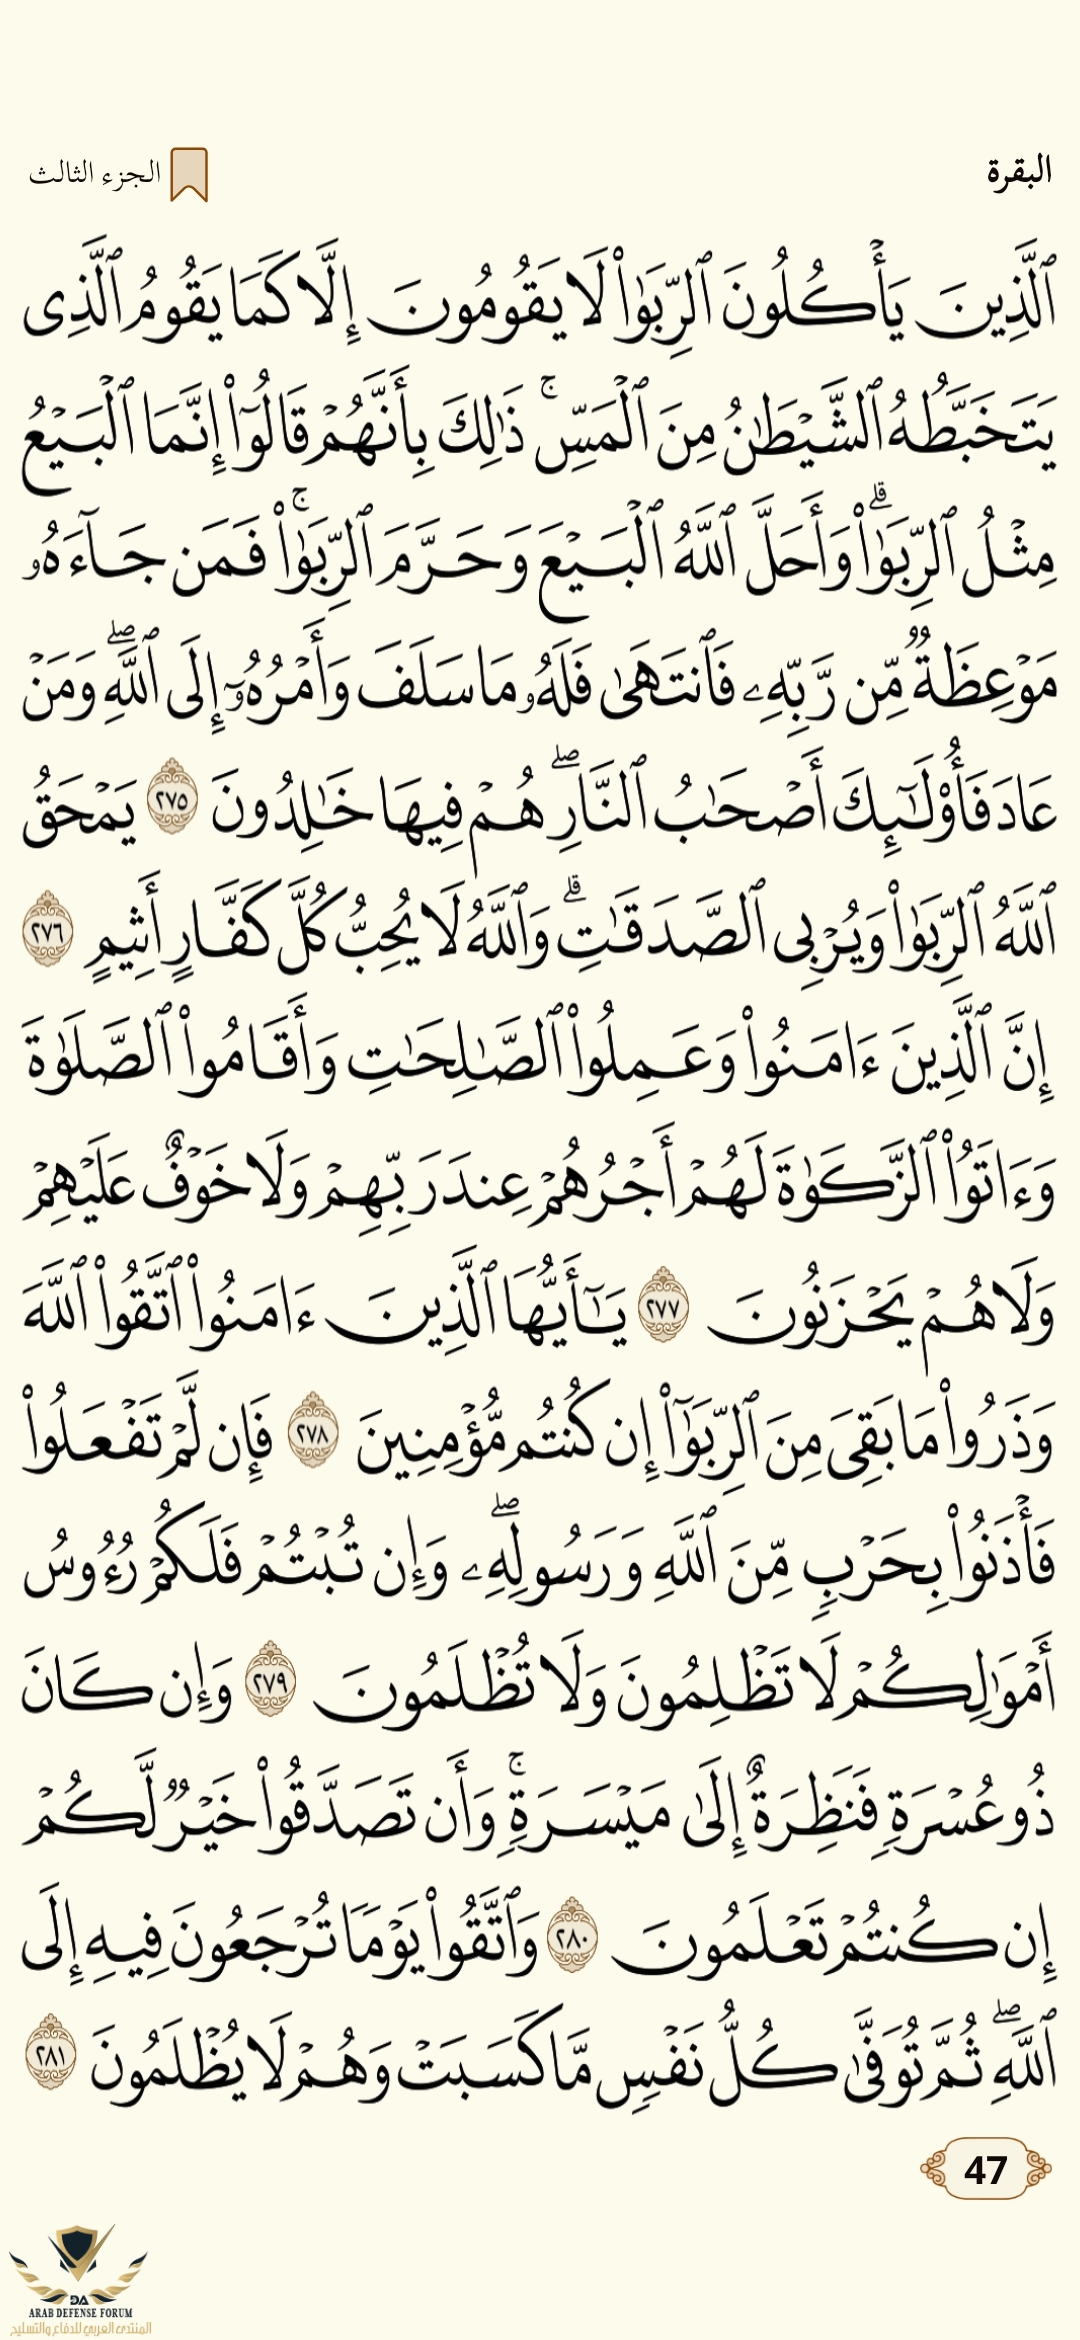 البقرة
الجزء الثالث
ٱلَّذِينَ يَأۡكُلُونَ ٱلرِّبَوٰاْ لَا يَقُومُونَ إِلَّا كَمَا يَقُومُ ٱلَّذِى
يَتَخَبَّطُهُ ٱلشَّيۡطَٰنُ مِنَ ٱلۡمَسِّۚ ذَٰلِكَ بِأَنَّهُمۡ قَالُوٓاْ إِنَّمَا ٱلۡبَيۡعُ
مِثۡلُ ٱلرِّبَوٰاْۗ وَأَحَلَّ ٱللَّهُ ٱلۡبَيۡعَ وَحَرَّمَ ٱلرِّبَوٰاْۚ فَمَن جَآءَهُۥ
مَوۡعِظَةٞ مِّن رَّبِّهِۦ فَٱنتَهَىٰ فَلَهُۥ مَا سَلَفَ وَأَمۡرُهُۥٓ إِلَى ٱللَّهِۖ وَمَنۡ
عَادَ فَأُوْلَٰٓئِكَ أَصۡحَٰبُ ٱلنَّارِۖ هُمۡ فِيهَا خَٰلِدُونَ ٢٧٥ يَمۡحَقُ
ٱللَّهُ ٱلرِّبَوٰاْ وَيُرۡبِى ٱلصَّدَقَٰتِۗ وَٱللَّهُ لَا يُحِبُّ كُلَّ كَفَّارٍ أَثِيمٍ ٢٧٦
إِنَّ ٱلَّذِينَ ءَامَنُواْ وَعَمِلُواْ ٱلصَّٰلِحَٰتِ وَأَقَامُواْ ٱلصَّلَوٰةَ
وَءَاتَوُاْ ٱلزَّكَوٰةَ لَهُمۡ أَجۡرُهُمۡ عِندَ رَبِّهِمۡ وَلَا خَوۡفٌ عَلَيۡهِمۡ
وَلَا هُمۡ يَحۡزَنُونَ ٢٧٧ يَٰٓأَيُّهَا ٱلَّذِينَ ءَامَنُواْ ٱتَّقُواْ ٱللَّهَ
وَذَرُواْ مَا بَقِىَ مِنَ ٱلرِّبَوٰٓاْ إِن كُنتُم مُّؤۡمِنِينَ ٢٧٨ فَإِن لَّمۡ تَفۡعَلُواْ
فَأۡذَنُواْ بِحَرۡبٖ مِّنَ ٱللَّهِ وَرَسُولِهِۦۖ وَإِن تُبۡتُمۡ فَلَكُمۡ رُءُوسُ
أَمۡوَٰلِكُمۡ لَا تَظۡلِمُونَ وَلَا تُظۡلَمُونَ ٢٧٩ وَإِن كَانَ
ذُو عُسۡرَةٖ فَنَظِرَةٌ إِلَىٰ مَيۡسَرَةٖۚ وَأَن تَصَدَّقُواْ خَيۡرٞ لَّكُمۡ
إِن كُنتُمۡ تَعۡلَمُونَ ٢٨٠ وَٱتَّقُواْ يَوۡمٗا تُرۡجَعُونَ فِيهِ إِلَى
ٱللَّهِۖ ثُمَّ تُوَفَّىٰ كُلُّ نَفۡسٖ مَّا كَسَبَتۡ وَهُمۡ لَا يُظۡلَمُونَ ٢٨١
47
DA
ARAB DEFENSE FORUM
المنتدى العربي للدفاع والتسليح